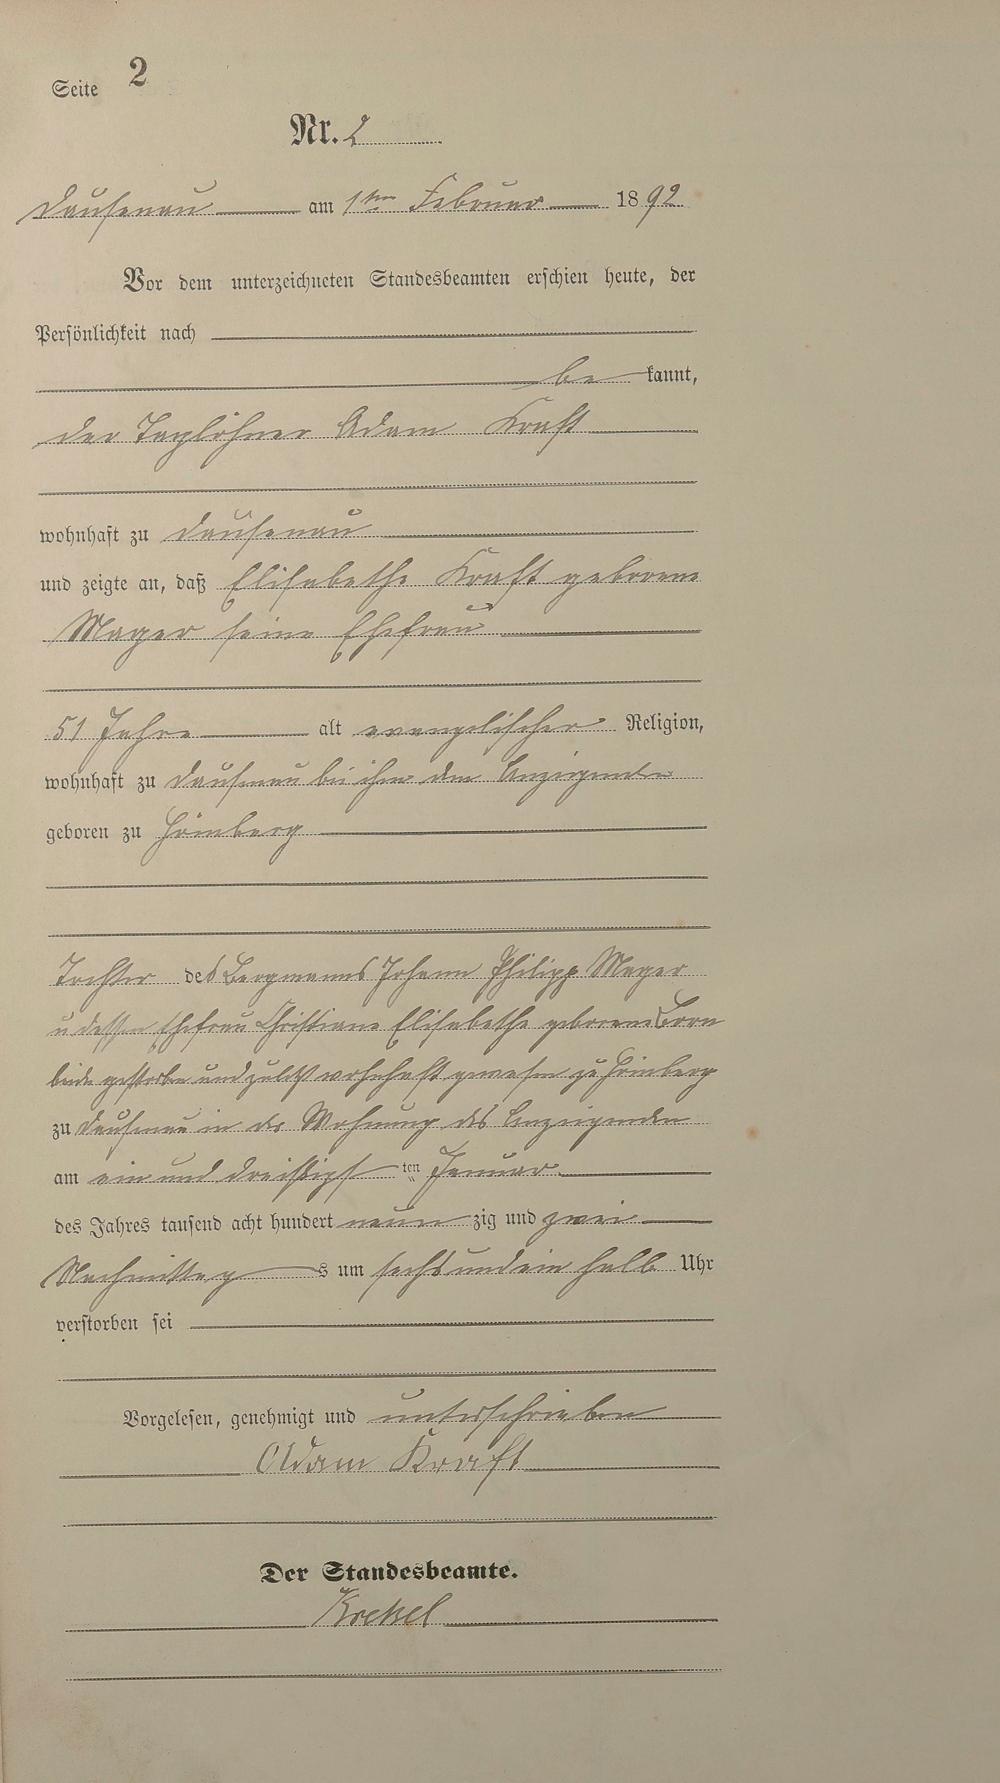 Seite 2
Nr. 2
Dausenau am 1ten Februar 1892
Vor dem unterzeichneten Standesbeamten erschien heute, der
Persönlichkeit nach
be kannt,
der Taglöhner Adam Kraft
wohnhaft zu Dausenau
und zeigte an, daß Elisabethe Kraft geborene
Mager seine Ehefrau
51 Jahre alt evangelischer Religion,
wohnhaft zu Dausenau bei ihm dem Anzeigenden
geboren zu Hömberg
Tochter des Bergmanns Johann Philipp Mager
u dessen Ehefrau Christiane Elisabethe geborene Born
beide gestorben und zuletzt wohnhaft gewesen zu Hömberg
zu Dausenau in der Wohnung des Anzeigenden
am ein und dreißigsten Januar
des Jahres tausend acht hundert neun zig und zwei
Nachmittags um sechs und ein halb Uhr
verstorben sei
Vorgelesen, genehmigt und unterschrieben
Adam Kraft
Der Standesbeamte.
Krekel